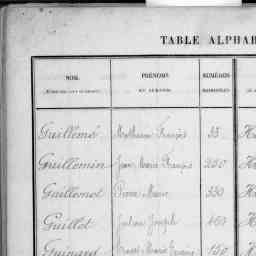 TABLE ALPHAB
NOM. PRÉNOMS NUMÉROS
Guillemo Mathurin François 35 H
Guillemin Jean Marie François 250 H
Guillemot Pierre Marie 330 H
Guillot Julien Joseph 460 H
Guinard Marie 150 H